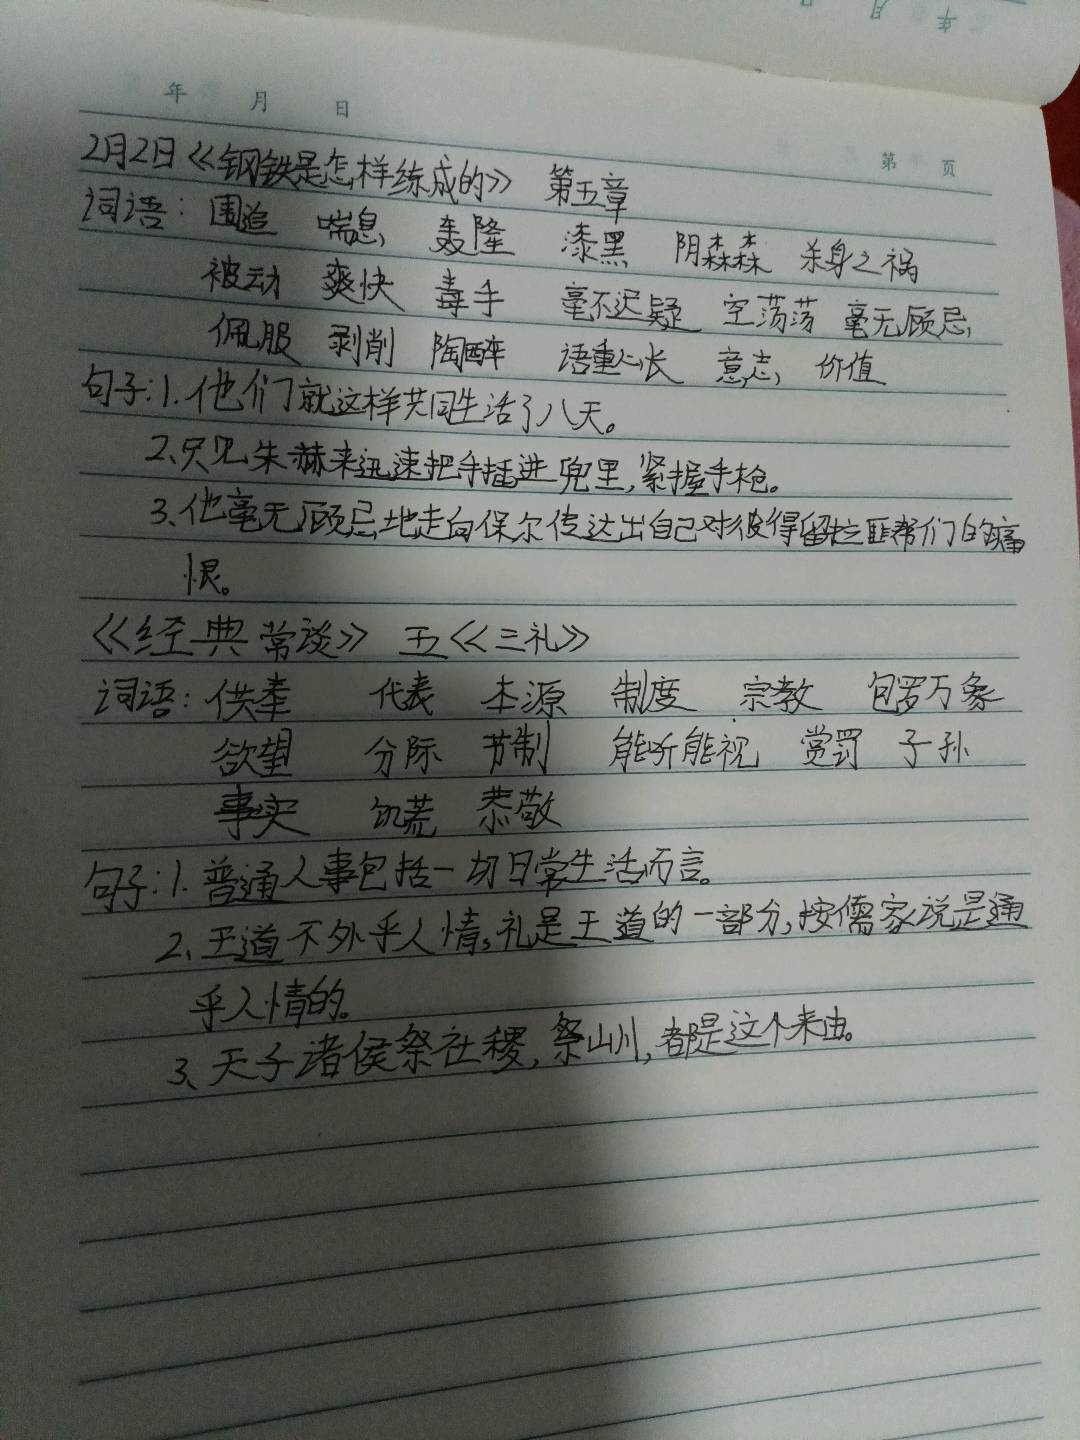 年 月 日
年 月 日
第 页
2月2日《钢铁是怎样练成的》 第五章
词语: 围追 喘息 轰隆 漆黑 阴森森 杀身之祸
被动 爽快 毒手 毫不迟疑 空荡荡 毫无顾忌
佩服 剥削 陶醉 语重心长 意志 价值
句子:1.他们就这样共同生活了八天。
2、只见朱赫来迅速把手插进兜里,紧握手枪。
3、他毫无顾忌地走向保尔传达出自己对彼得留拉匪帮们的痛
恨。
《经典常谈》 五《三礼》
词语: 供奉 代表 本源 制度 宗教 包罗万象
欲望 分际 节制 能听能视 赏罚 子孙
事实 饥荒 恭敬
句子:1.普通人事包括一切日常生活而言。
2、王道不外乎人情,礼是王道的一部分,按儒家说是通
乎人情的。
3、天子诸侯祭社稷,祭山川,都是这个来由。